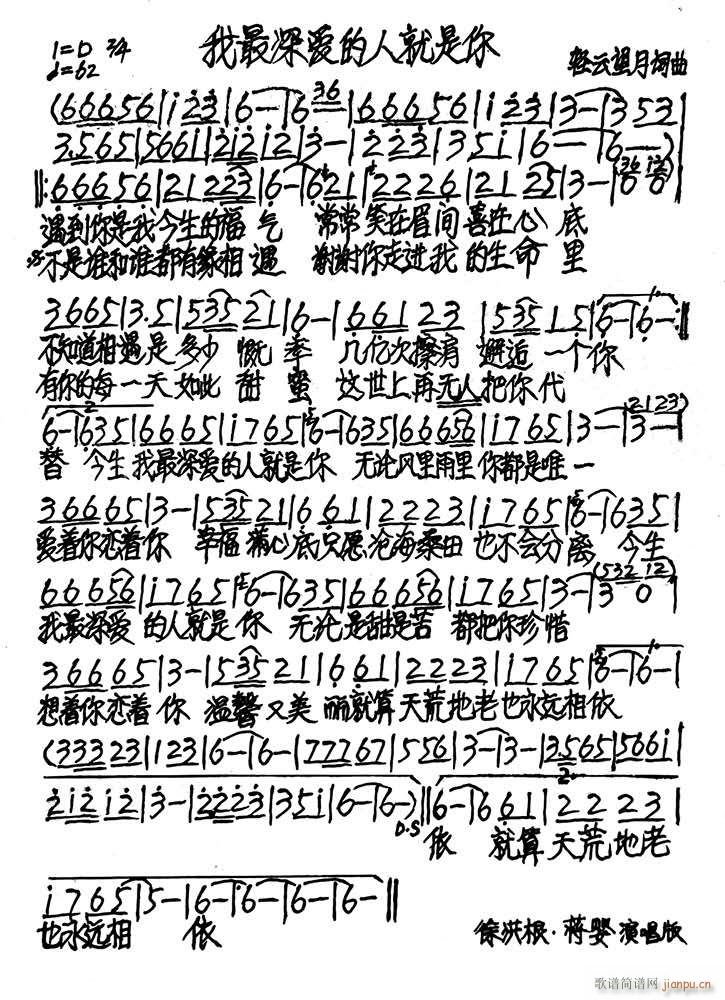 我最深爱的人就是你
1=D 2/4
♩=62
轻云望月词曲
(66656|i 23|6-|6 36|66656|i 23|3-|3 53|
3.565|5661|2i2i2|3-|2223|35i|6-|6-)|
‖:66656|21223|6-|621|2226|2125|3-|(36 12)
遇到你是我今生的福气 常常笑在眉间喜在心底
不是谁和谁都有缘相遇 谢谢你走进我的生命里
3665|3.5|53521|6-|66123|53515|6-|6-:‖
不知道相遇是多少慨率 几亿次擦肩邂逅一个你
有你的每一天如此甜蜜 这世上再无人把你代
6-|635|6665|i765|6-|635|66656|i765|3-|3-(2123)|
替 今生我最深爱的人就是你 无论风里雨里你都是唯一
36665|3-|53521|661|2223|i765|6-|635|
爱着你恋着你 幸福满心底只愿沧海桑田也不会分离 今生
66656|i765|6-|635|66656|i765|3-|30(532 12)|
我最深爱的人就是你 无论是甜是苦都把你珍惜
36665|3-|53521|661|2223|i765|6-|6-|
想着你恋着你 温馨又美丽就算天荒地老也永远相依
(33323|123|6-|6-|77767|556|3-|3-|3.565|566i|
2i2i2|3-|2223|35i|6-|6-)‖6-|661|2223|
D.S
依 就算天荒地老
i765|5-|6-|6-|6-|6-‖
也永远相 依
徐洪根·蒋婴演唱版
歌谱简谱网
jianpu.cn